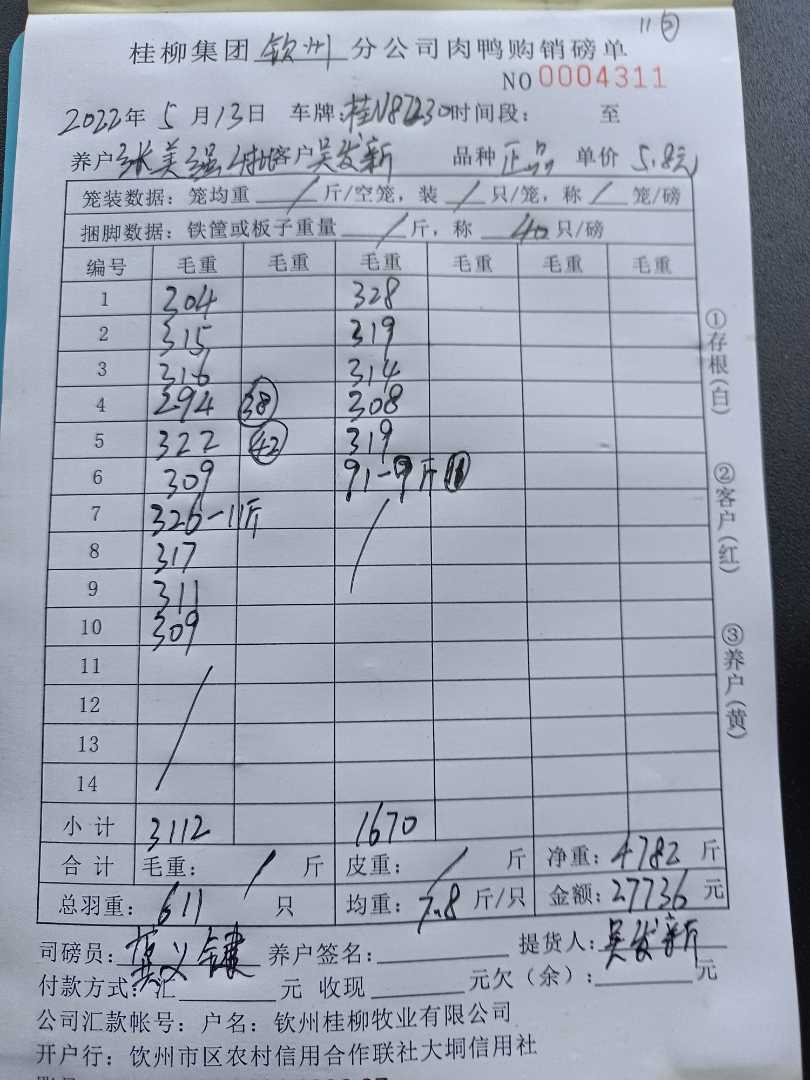 11回
桂柳集团 钦州 分公司肉鸭购销磅单
NO 0004311
2022年 5 月 13日 车牌:桂N87230时间段: 至
养户 张美强 客户 吴发新 品种 正品 单价 5.8元
笼装数据: 笼均重 / 斤/空笼, 装 / 只/笼, 称 / 笼/磅
捆脚数据: 铁筐或板子重量 / 斤, 称 40 只/磅
编号 毛重 毛重 毛重 毛重 毛重 毛重
1 304 328
2 315 319
3 316 314
4 294 38 308
5 322 42 319
6 309 91-9斤
7 326-11斤 /
8 317
9 311
10 309
11 /
12
13
14
小 计 3112 1670
合 计 毛重: / 斤 皮重: / 斤 净重: 4782 斤
总羽重: 611 只 均重: 7.8 斤/只 金额: 27736 元
司磅员: 莫义健 养户签名: 提货人: 吴发新
付款方式: 汇 元 收现 元欠(余): 元
公司汇款帐号: 户名: 钦州桂柳牧业有限公司
开户行: 钦州市区农村信用合作联社大垌信用社
①存根(白)
②客户(红)
③养户(黄)